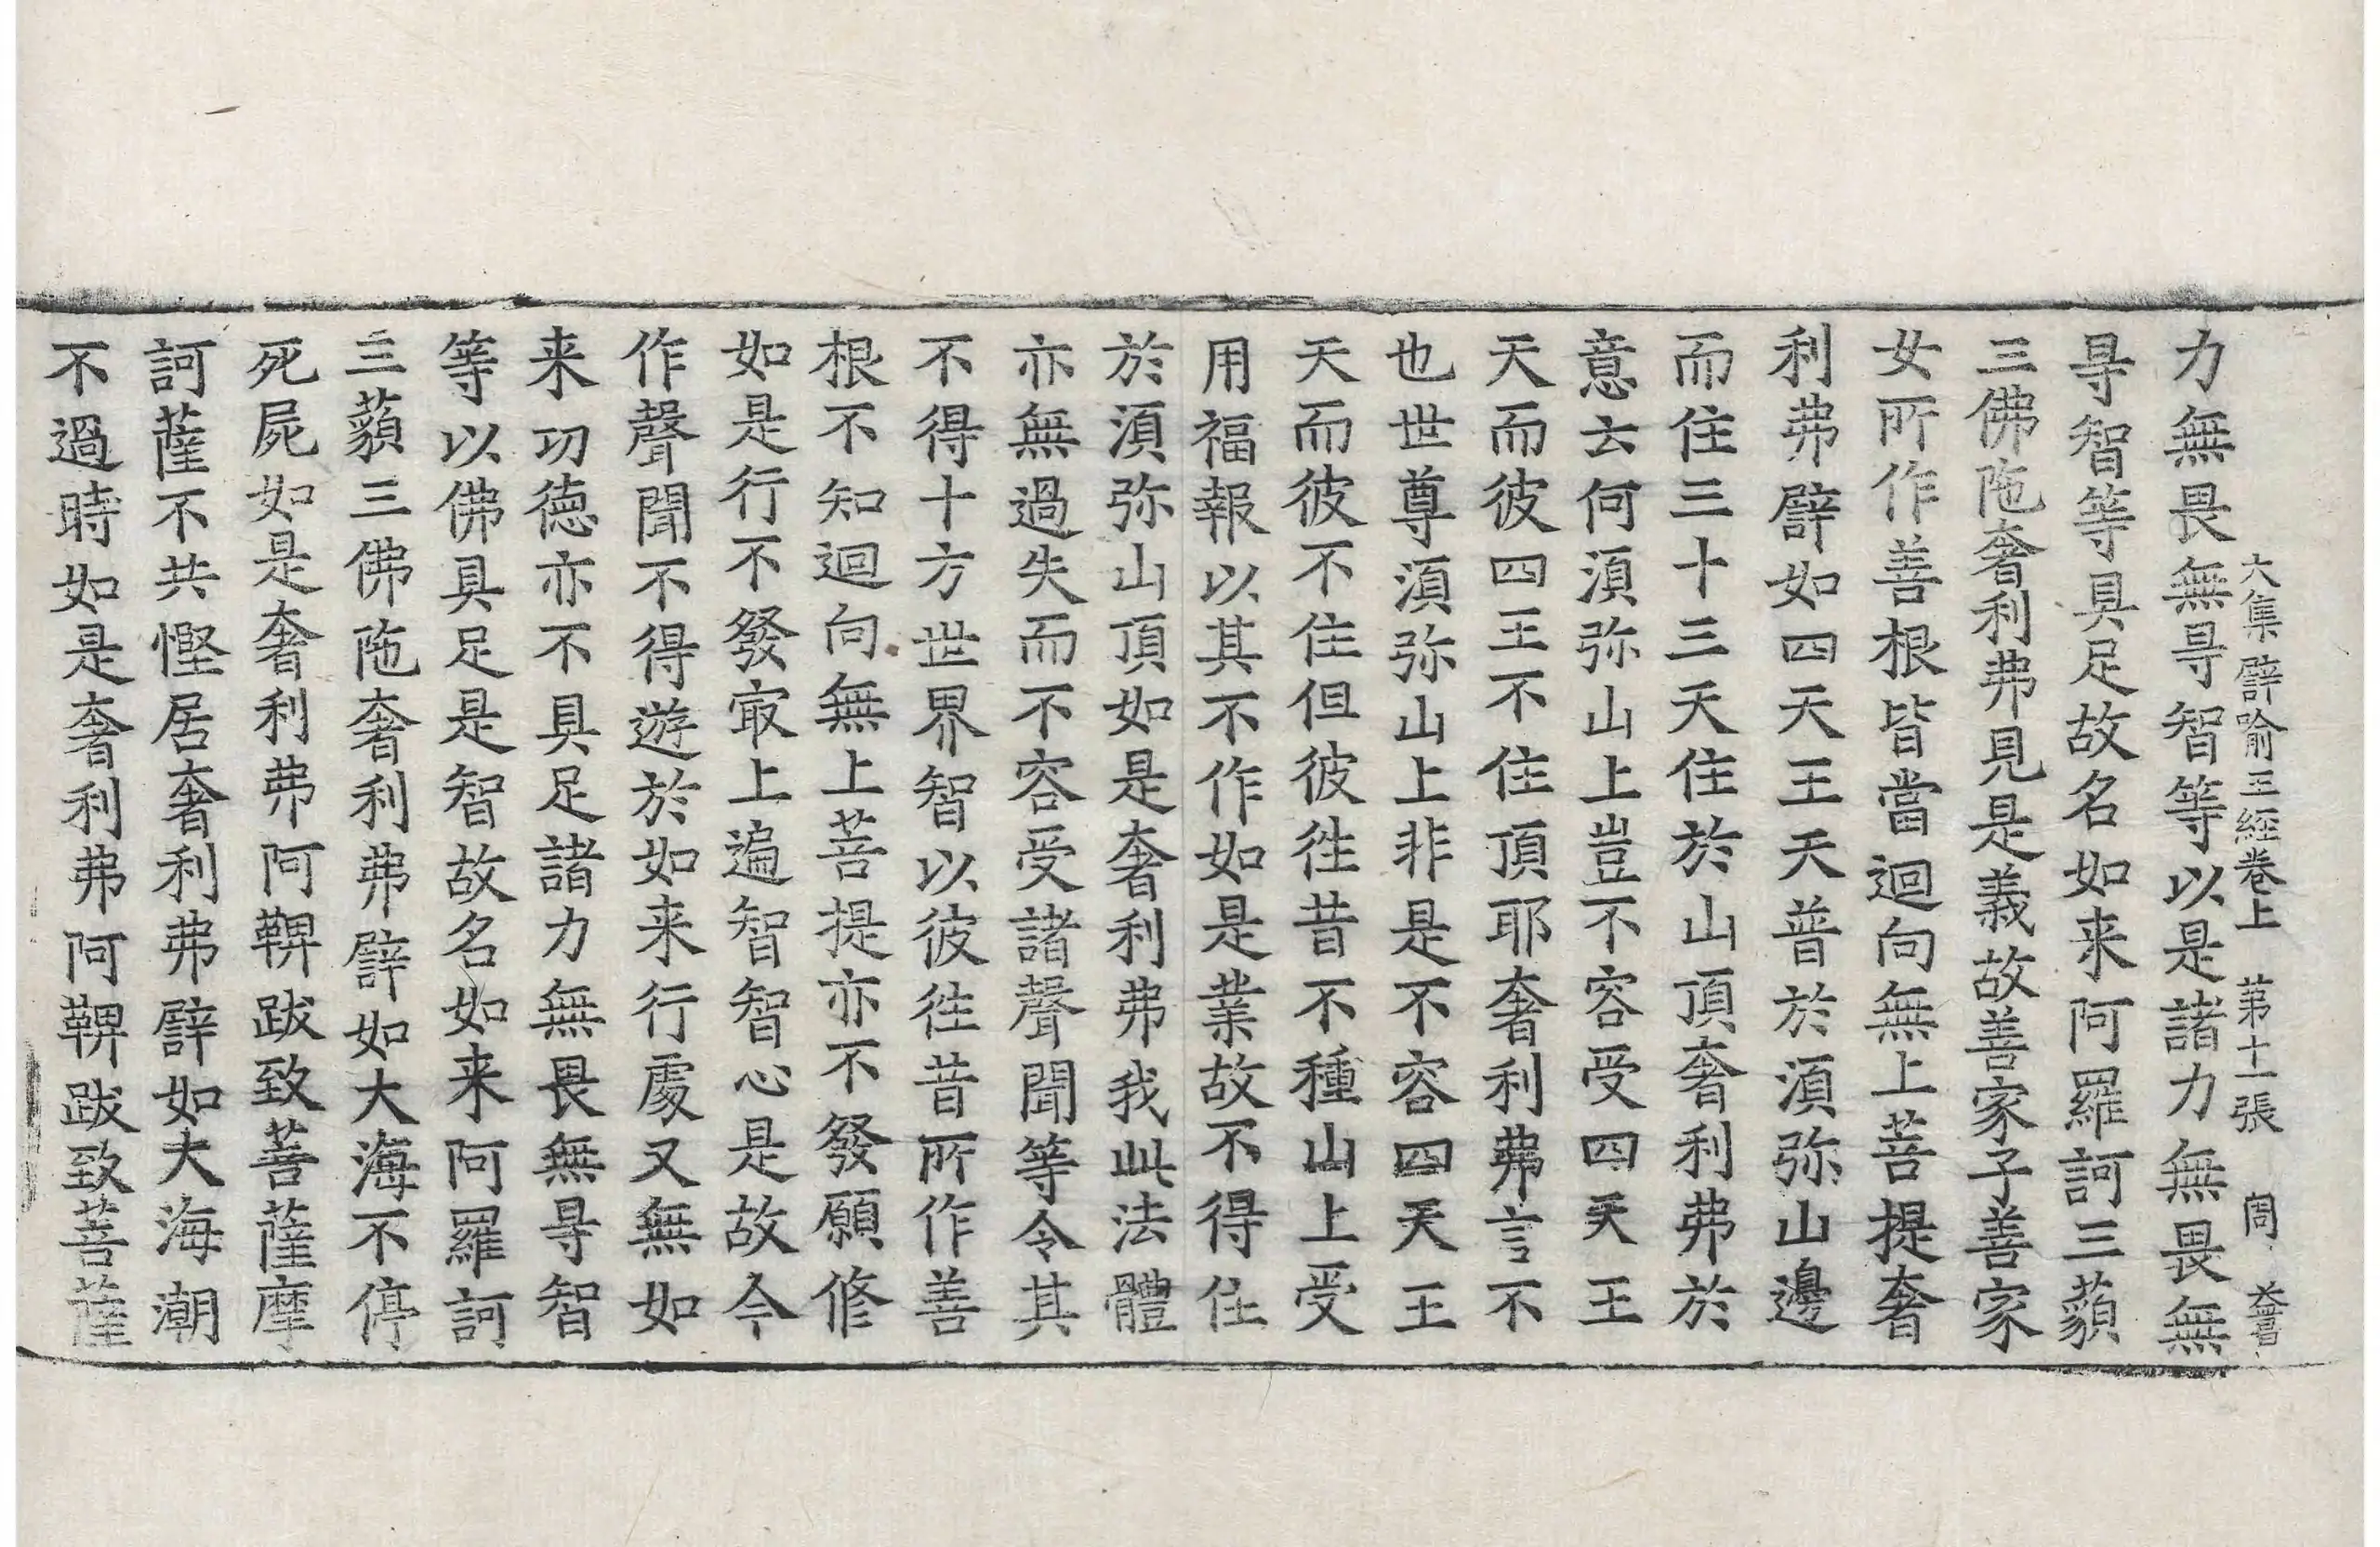 大集譬喻王經卷上　第十一張　周
力無畏無㝵智等以是諸力無畏無
㝵智等具足故名如来阿羅訶三藐
三佛陁奢利弗見是義故善家子善家
女所作善根皆當迴向無上菩提奢
利弗譬如四天王天普於湏弥山邊
而住三十三天住於山頂奢利弗於
意云何湏弥山上豈不容受四天王
天而彼四王不住頂耶奢利弗言不
也世尊湏弥山上非是不容四天王
天而彼不住但彼徃昔不種山上受
用福報以其不作如是業故不得住
於湏弥山頂如是奢利弗我此法體
亦無過失而不容受諸聲聞等令其
不得十方世界智以彼徃昔所作善
根不知迴向無上菩提亦不發願修
如是行不發㝡上遍智智心是故今
作聲聞不得遊於如来行處又無如
来功徳亦不具足諸力無畏無㝵智
等以佛具足是智故名如来阿羅訶
三藐三佛陁奢利弗譬如大海不停
死屍如是奢利弗阿鞞跋致菩薩摩
訶薩不共慳居奢利弗譬如大海潮
不過時如是奢利弗阿鞞跋致菩薩